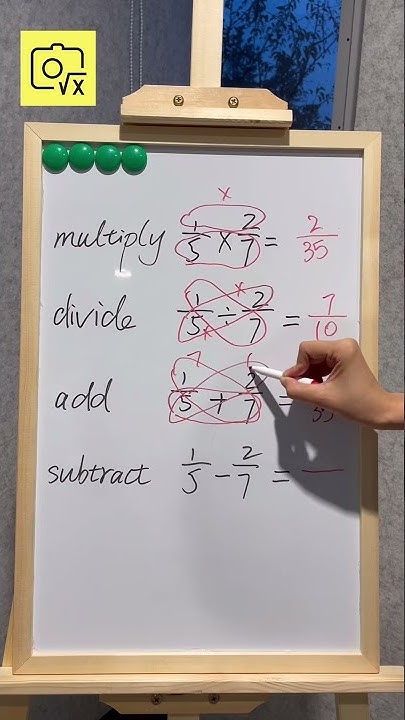 √x
x
multiply 1/5 x 2/7 = 2/35
x
x
divide 1/5 ÷ 2/7 = 7/10
7
add 1/5 + 2/7 =
subtract 1/5 - 2/7 =